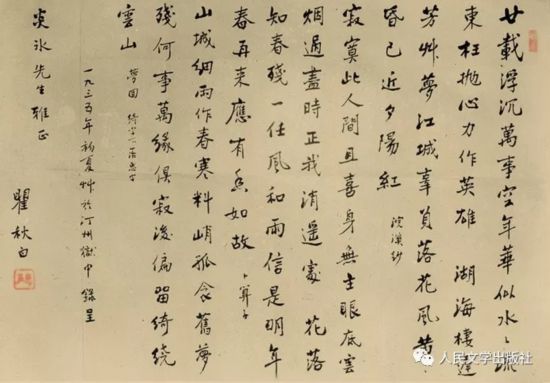 廿載浮沉萬事空年華似水〻流
東枉拋心力作英雄 湖海棲遲
芳艸夢江城辜負落花風黃
昏已近夕陽紅 浣溪紗
寂寞此人間且喜身無主眼底雲
烟過盡時正我逍遙處 花落
知春殘一任風和雨信是明年
春再來應有香如故 卜算子
山城細雨作春寒料峭孤衾舊夢
殘何事萬緣俱寂後偏留綺繞
雲山 夢回 綺字下落思字
一九三五年初夏艸於汀州獄中 錄呈
炎冰先生雅正
瞿秋白
人民文学出版社